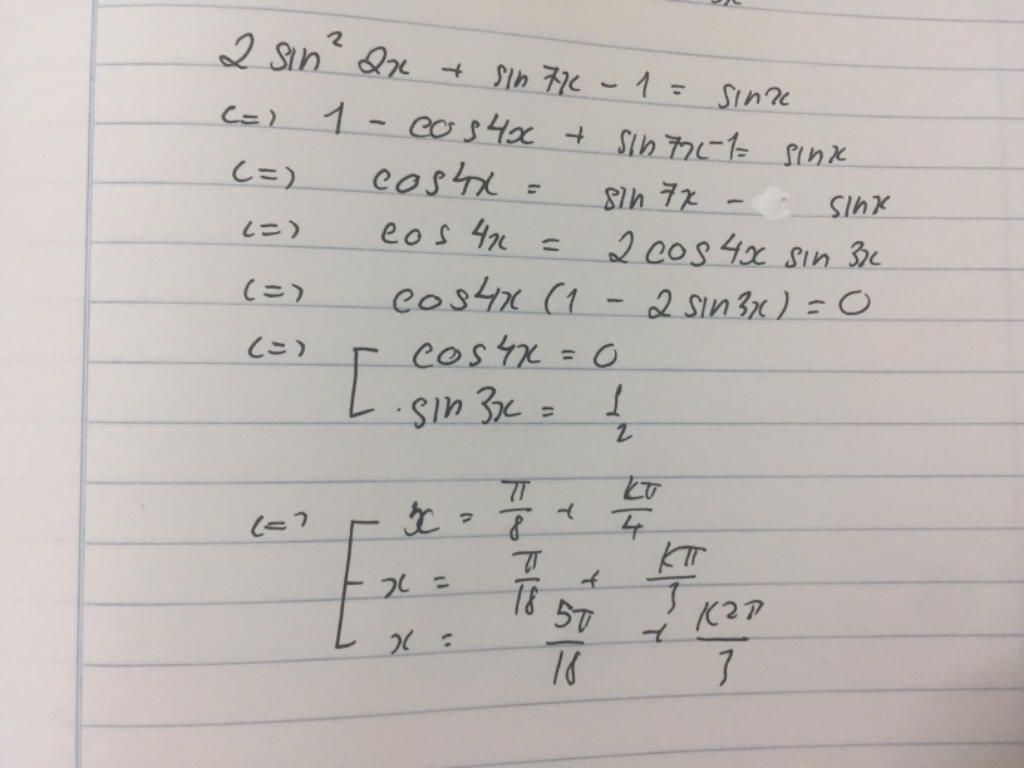 2 sin² 2x + sin 7x - 1 = sinx
<=> 1 - cos4x + sin7x-1= sinx
<=> cos4x = sin 7x - sinx
<=> cos 4x = 2cos4x sin 3x
<=> cos4x (1 - 2 sin3x) = 0
<=> [ cos4x = 0
sin 3x = 1/2
<=> [ x = π/8 + kπ/4
x = π/18 + kπ/3
x = 5π/18 + k2π/3